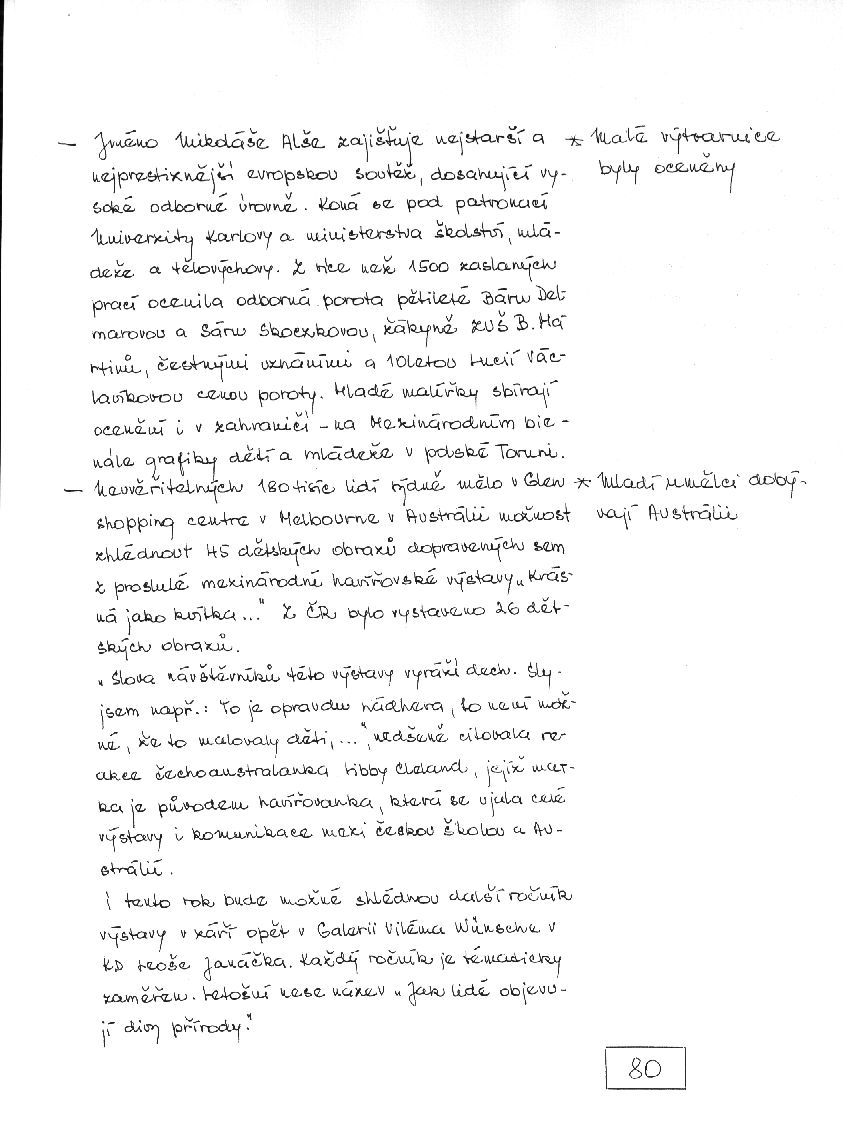 – Jméno Mikoláše Alše zajišťuje nejstarší a
nejprestižnější evropskou soutěž, dosahující vy-
soké odborné úrovně. Koná se pod patronací
Univerzity Karlovy a ministerstva školství, mlá-
deže a tělovýchovy. Z více než 1500 zaslaných
prací ocenila odborná porota pětileté Báru Det
marovou a Sáru Skoczkovou, žákyně ZUŠ B. Ma
rtinů, čestnými uznáními a 10letou Lucii Vác-
lavíkovou cenou poroty. Mladé malířky sbírají
ocenění i v zahraničí – na Mezinárodním bie-
nále grafiky dětí a mládeže v polské Toruni.
* Malé výtvarnice
byly oceněny
– Neuvěřitelných 180 tisíc lidí týdně mělo v Glen
shopping centre v Melbourne v Austrálii možnost
zhlédnout 45 dětských obrazů dopravených sem
z proslulé mezinárodní havířovské výstavy „Krás-
ná jako kvítka..." Z ČR bylo vystaveno 26 dět-
ských obrazů.
* Mladí umělci dobý-
vají Austrálii
„Slova návštěvníků této výstavy vyráží dech. Sly-
jsem např.: To je opravdu nádhera, to není mož-
né, že to malovaly děti,...", nadšeně citovala re-
akce čechoaustralanka Libby Cleland, jejíž mat-
ka je původem havířovanka, která se ujala celé
výstavy i komunikace mezi českou školou a Au-
strálií.
I tento rok bude možné shlédnou další ročník
výstavy v září opět v Galerii Viléma Wünsche v
KD Leoše Janáčka. Každý ročník je tématicky
zaměřen. Letošní nese název „Jak lidé objevu-
jí divy přírody."
80